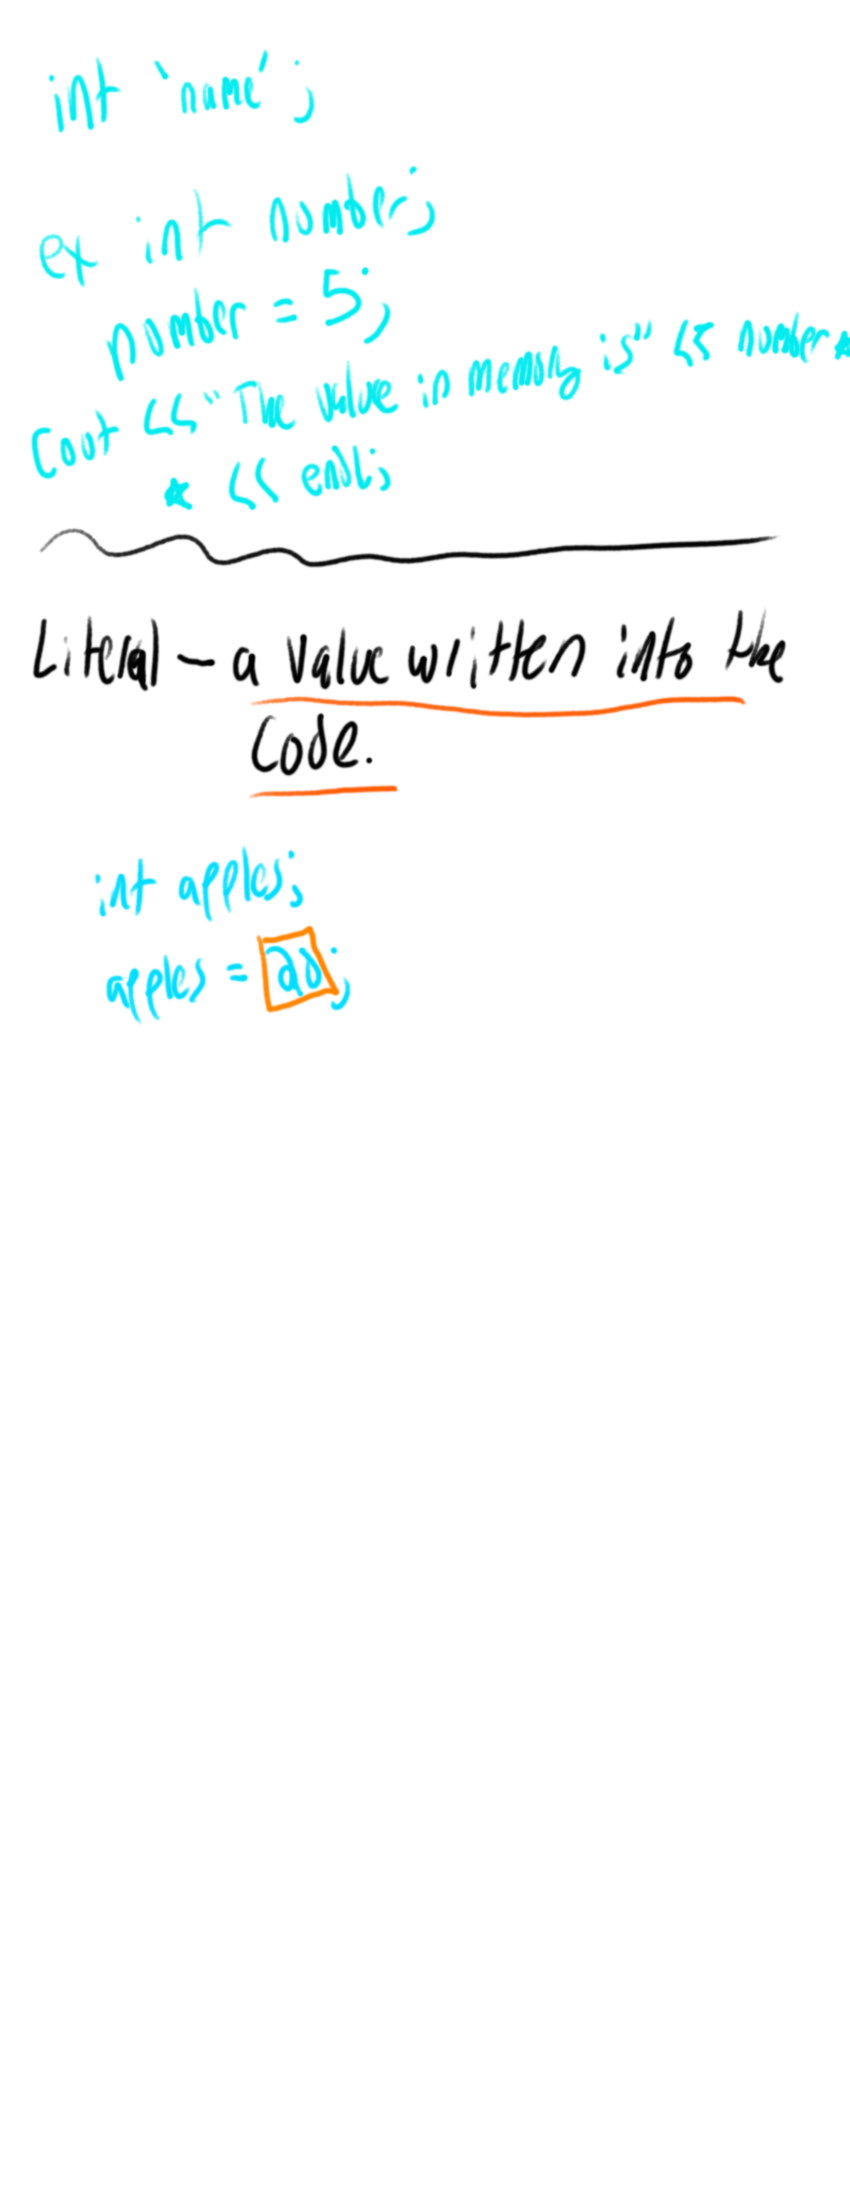 int 'name';
ex int number;
number = 5;
Cout << "The value in memory is" << number *
* << endl;
Literal - a value written into the
Code.
int apples;
apples = 20;